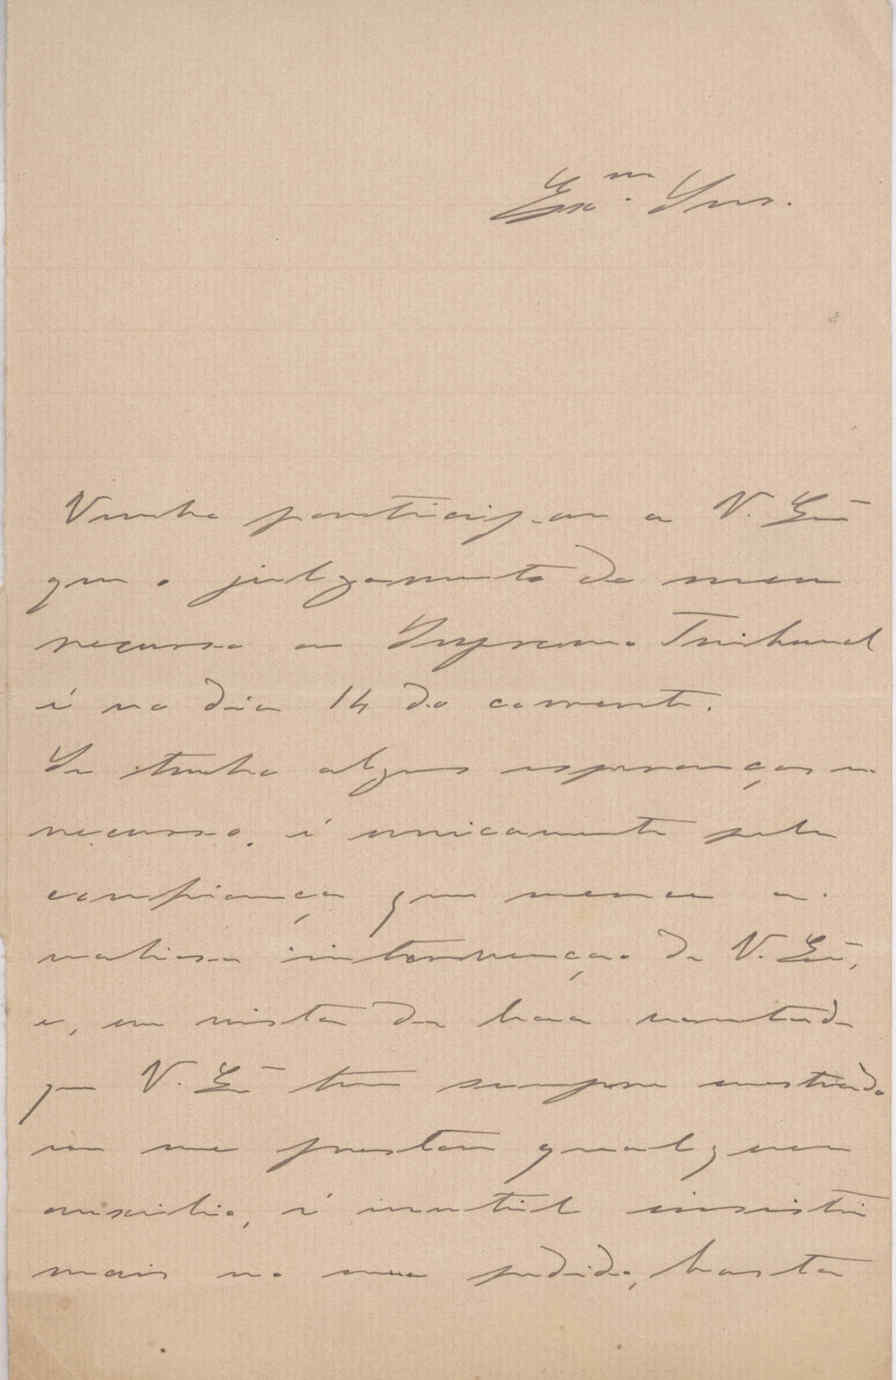 Ex.mo Snr.
Venho participar a V. Ex.
que o julgamento do meu
recurso ao Supremo Tribunal
é no dia 14 do corrente.
Se tenho algumas esperanças no
recurso, é unicamente pela
confiança que merece a
valiosa intervenção de V. Ex.,
e, em vista da boa vontade
que V. Ex. tem sempre mostrado
em me prestar qualquer
auxilio, é inutil insistir
mais no meu pedido, basta